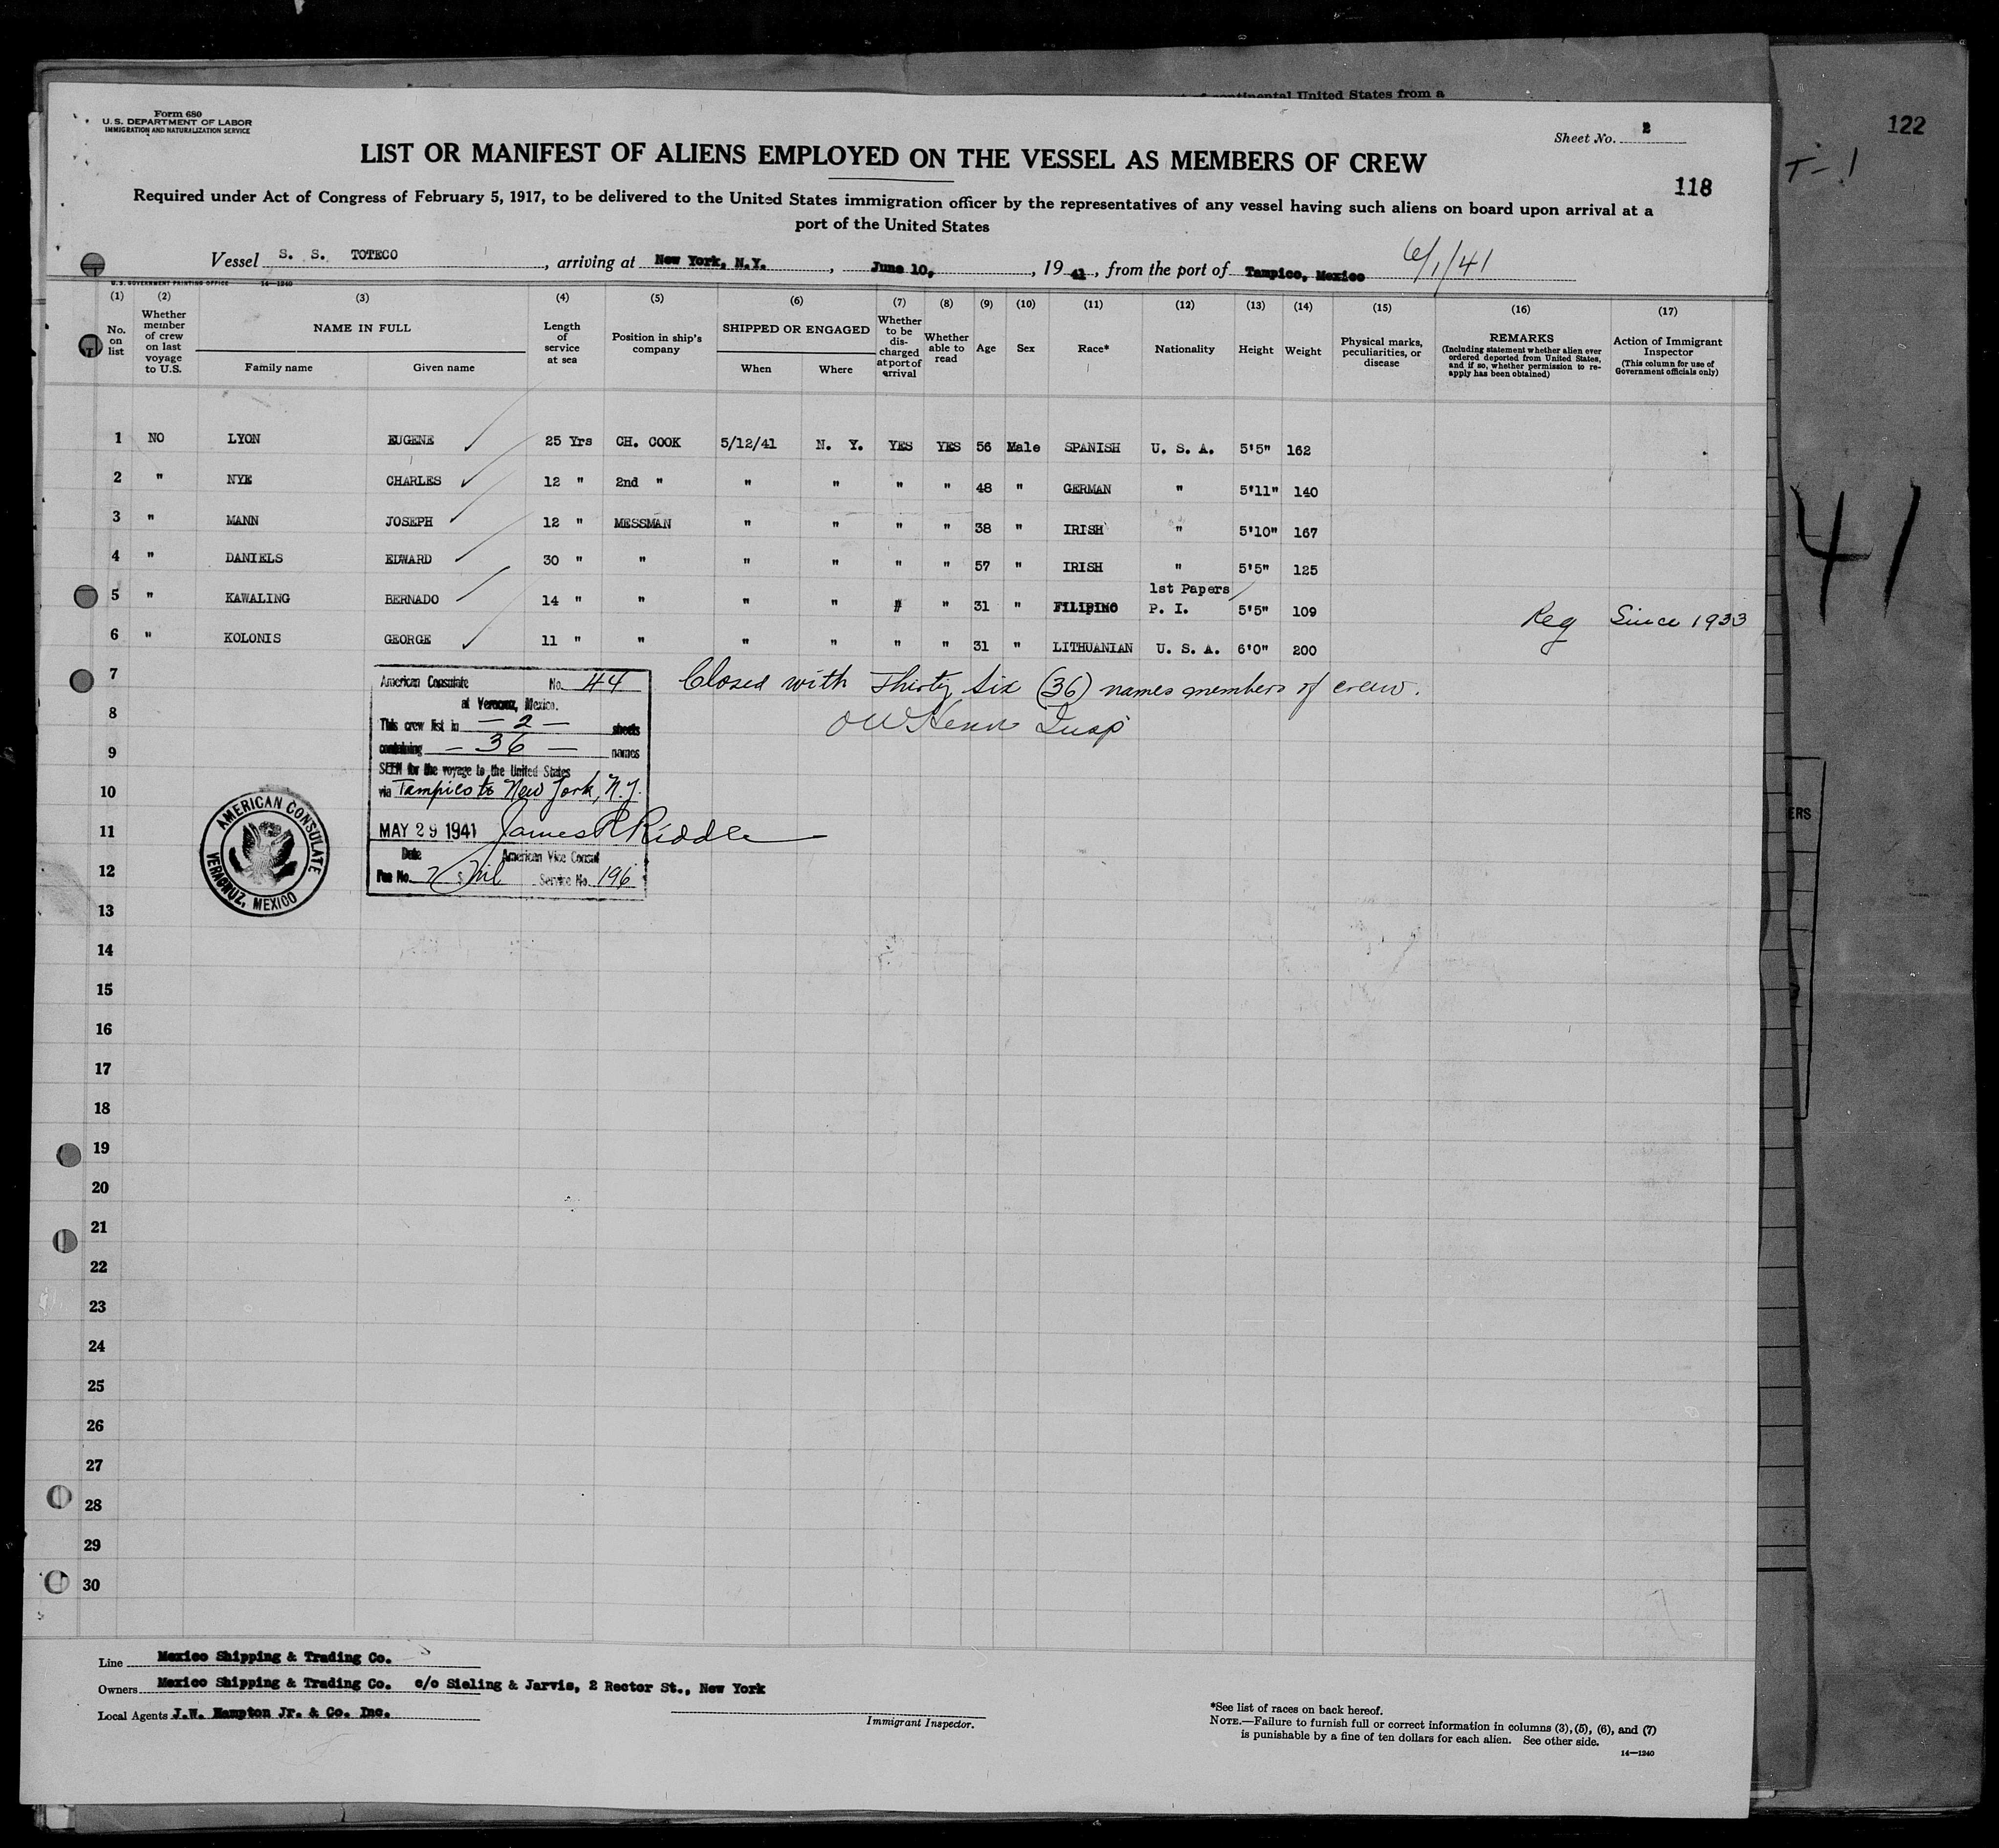 of continental United States from a
122
T-1
41
ERS
Form 680
U. S. DEPARTMENT OF LABOR
IMMIGRATION AND NATURALIZATION SERVICE
Sheet No. 2
LIST OR MANIFEST OF ALIENS EMPLOYED ON THE VESSEL AS MEMBERS OF CREW
118
Required under Act of Congress of February 5, 1917, to be delivered to the United States immigration officer by the representatives of any vessel having such aliens on board upon arrival at a
port of the United States
Vessel S. S. TOTECO, arriving at New York, N.Y., June 10, 1941, from the port of Tampico, Mexico 6/1/41
U. S. GOVERNMENT PRINTING OFFICE 14—1240
(1) (2) (3) (4) (5) (6) (7) (8) (9) (10) (11) (12) (13) (14) (15) (16) (17)
No. on list
Whether member of crew on last voyage to U.S.
NAME IN FULL
Family name Given name
Length of service at sea
Position in ship's company
SHIPPED OR ENGAGED
When Where
Whether to be discharged at port of arrival
Whether able to read
Age
Sex
Race*
Nationality
Height
Weight
Physical marks, peculiarities, or disease
REMARKS
(Including statement whether alien ever ordered deported from United States, and if so, whether permission to reapply has been obtained)
Action of Immigrant Inspector
(This column for use of Government officials only)
1 NO LYON EUGENE 25 Yrs CH. COOK 5/12/41 N. Y. YES YES 56 Male SPANISH U. S. A. 5'5" 162
2 " NYE CHARLES 12 " 2nd " " " " " 48 " GERMAN " 5'11" 140
3 " MANN JOSEPH 12 " MESSMAN " " " " 38 " IRISH " 5'10" 167
4 " DANIELS EDWARD 30 " " " " " " 57 " IRISH " 5'5" 125
5 " KAWALING BERNADO 14 " " " " " " 31 " FILIPINO 1st Papers P. I. 5'5" 109 Reg Since 1933
6 " KOLONIS GEORGE 11 " " " " " " 31 " LITHUANIAN U. S. A. 6'0" 200
7
8
9
10
11
12
13
14
15
16
17
18
19
20
21
22
23
24
25
26
27
28
29
30
Closed with Thirty Six (36) names members of crew.
Insp
American Consulate No. 44
at Veracruz, Mexico.
This crew list in — 2 — sheets
containing — 36 — names
SEEN for the voyage to the United States
via Tampico to New York, N.Y.
MAY 29 1941 James R Riddle
Date American Vice Consul
Fee No. Nil Service No. 196
AMERICAN CONSULATE
VERACRUZ, MEXICO
Line Mexico Shipping & Trading Co.
Owners Mexico Shipping & Trading Co. c/o Sieling & Jarvis, 2 Rector St., New York
Local Agents J.W. Hampton Jr. & Co. Inc.
Immigrant Inspector.
*See list of races on back hereof.
NOTE.—Failure to furnish full or correct information in columns (3), (5), (6), and (7)
is punishable by a fine of ten dollars for each alien. See other side.
14—1240